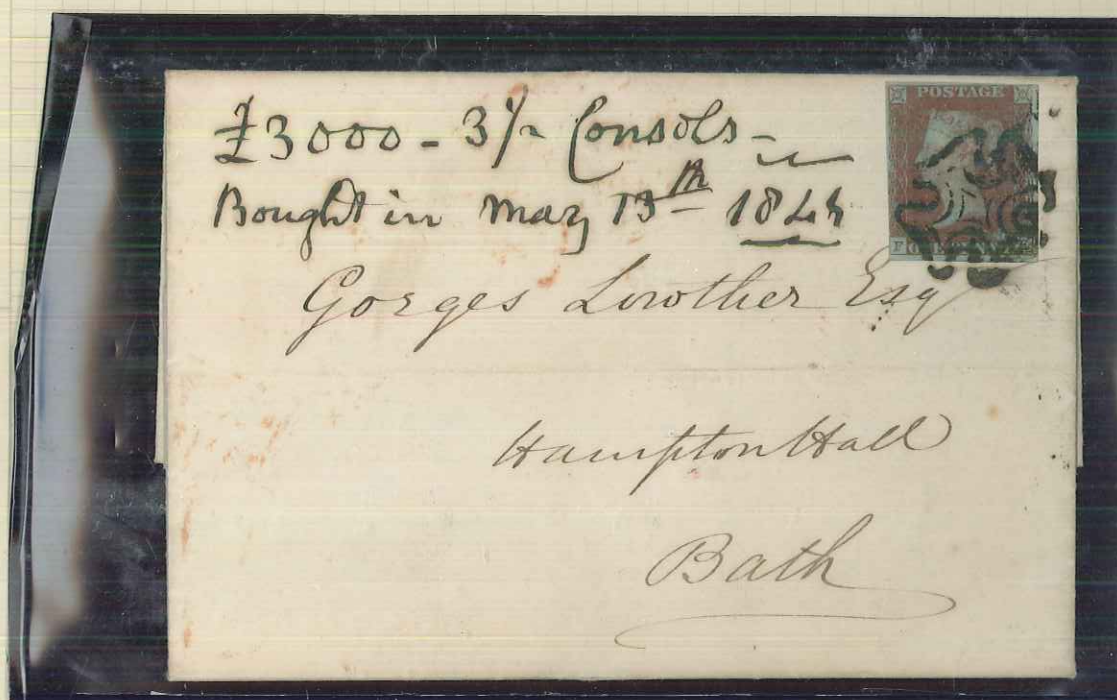 £3000 - 3 p/c Consols -
Bought in May 13th 1844
POSTAGE
F ONE PENNY
Gorges Lowther Esq
Hampton Hall
Bath